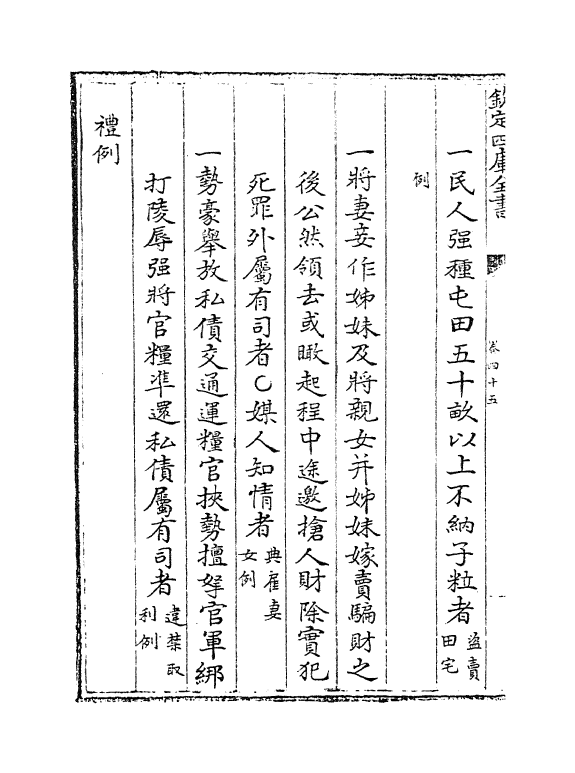 欽定四庫全書
卷四十五
一民人强種屯田五十畝以上不納子粒者盜賣田宅
例
一將妻妾作姊妹及將親女并姊妹嫁賣騙財之
後公然領去或瞰起程中途邀搶人財除實犯
死罪外屬有司者○媒人知情者典雇妻女例
一勢豪舉放私債交通運糧官挾勢擅拏官軍綁
打陵辱强將官糧準還私債屬有司者違禁取利例
禮例